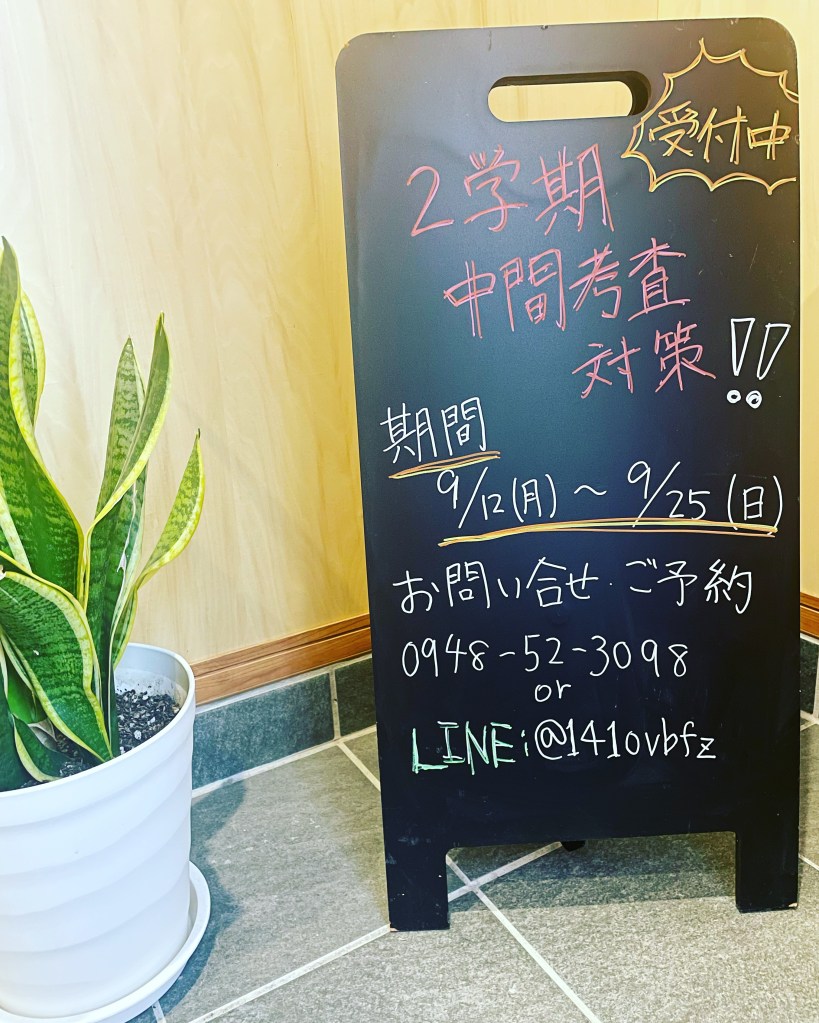 受付中
2学期
中間考査
対策!!
期間
9/12(月)〜9/25(日)
お問い合せ・ご予約
0948-52-3098
or
LINE:@141ovbfz